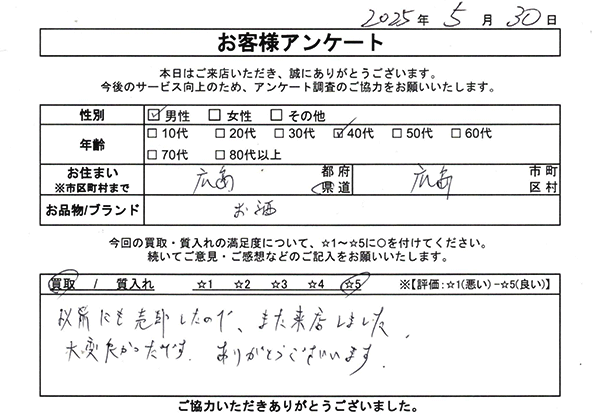 2025年 5月 30日
お客様アンケート
本日はご来店いただき、誠にありがとうございます。
今後のサービス向上のため、アンケート調査のご協力をお願いいたします。
性別 ☑男性 □女性 □その他
年齢 □10代 □20代 □30代 ☑40代 □50代 □60代
□70代 □80代以上
お住まい ※市区町村まで 広島 都府県道 広島 市町区村
お品物/ブランド お酒
今回の買取・質入れの満足度について、☆1～☆5に○を付けてください。
続いてご意見・ご感想などのご記入をお願いいたします。
買取 / 質入れ ☆1 ☆2 ☆3 ☆4 ☆5 ※【評価:☆1(悪い)−☆5(良い)】
以前にも売却したので、また来店しました。
大変良かったです。ありがとうございます。
ご協力いただきありがとうございました。